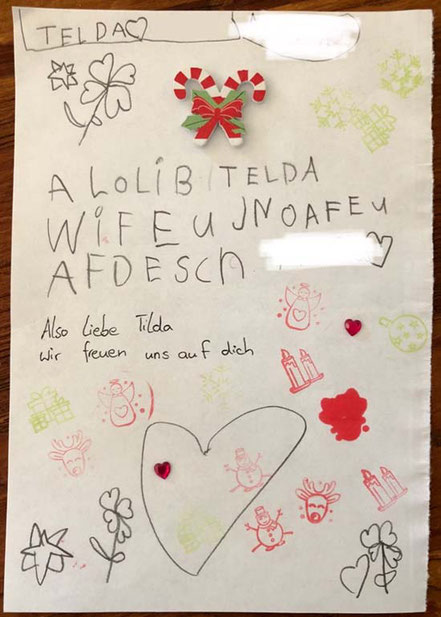 TELDA
A LOLIB TELDA
WIFEU JNOAFEU
AFDESCH
Also liebe Tilda
wir freuen uns auf dich